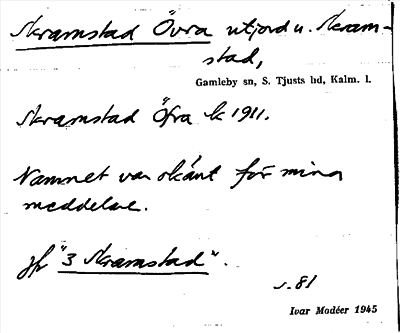 Skramstad Övra utjord u. Skram-
stad,
Gamleby sn, S. Tjusts hd, Kalm. l.
Skramstad Öfra k 1911.
Namnet var okänt för mina
meddelare.
jfr "3 Skramstad".
s. 81
Ivar Modéer 1945